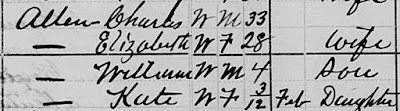 Allen Charles W M 33
— Elizabeth W F 28 wife
— William W M 4 Son
— Kate W F 3/12 Feb Daughter